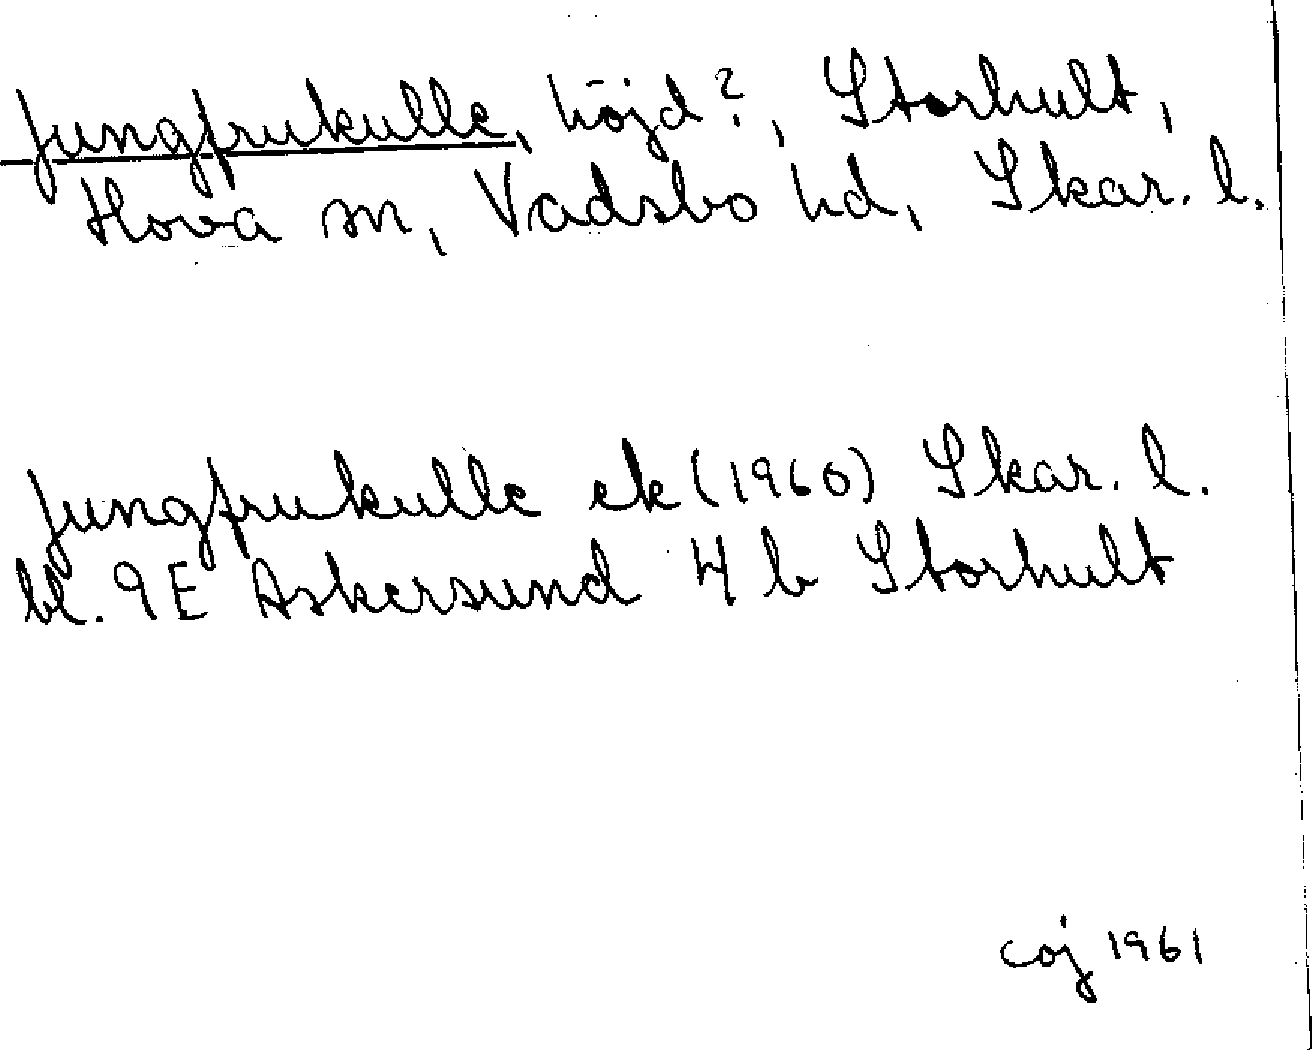 Jungfrukulle, höjd?, Storhult,
Hova sn, Vadsbo hd, Skar. l.
Jungfrukulle ek (1960) Skar. l.
bl. 9E Askersund 4 b Storhult
coj 1961